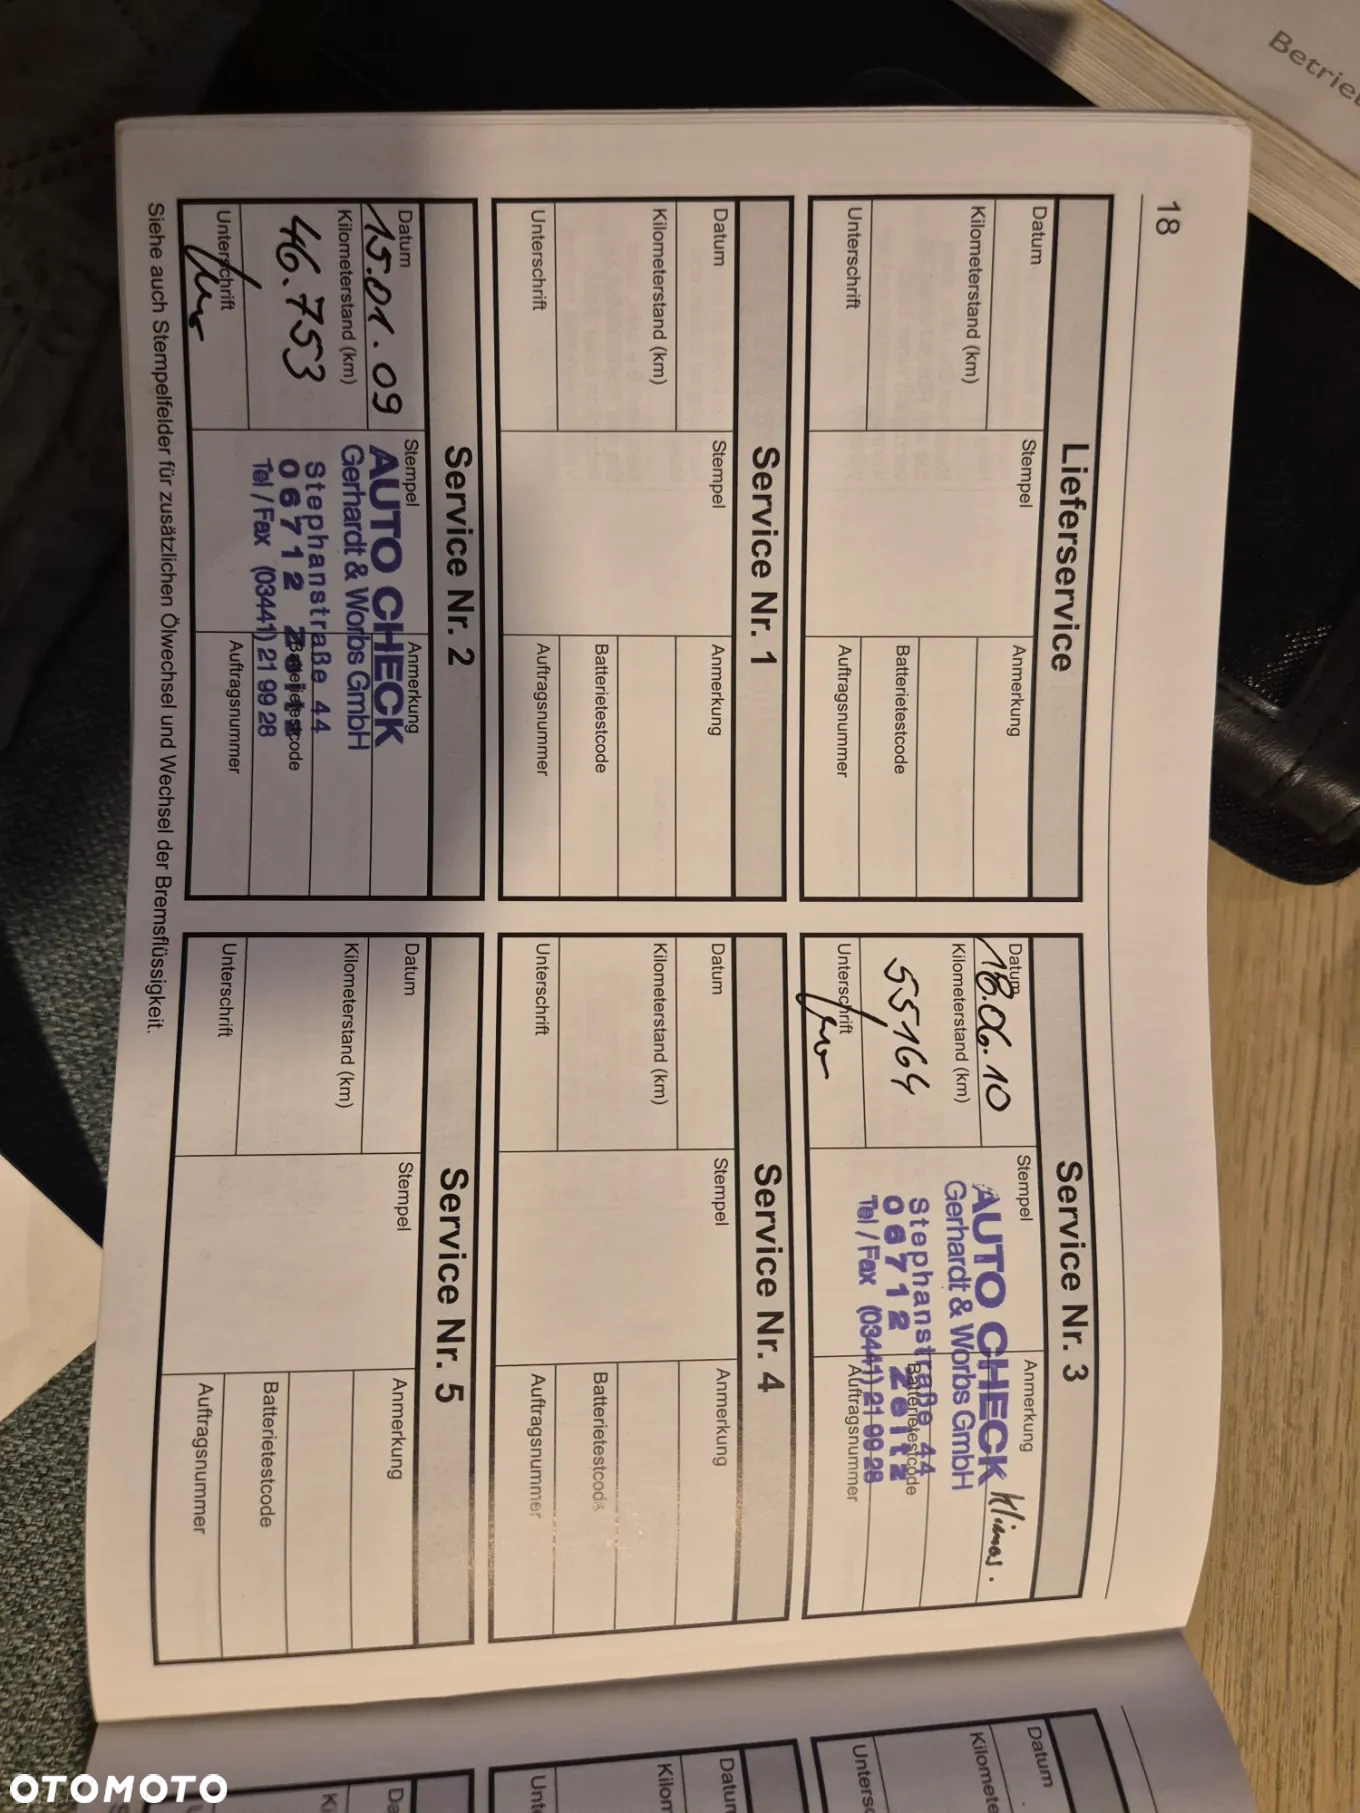 Betrie
18
Lieferservice
Datum
Kilometerstand (km)
Unterschrift
Stempel
Anmerkung
Batterietestcode
Auftragsnummer
Service Nr. 1
Datum
Kilometerstand (km)
Unterschrift
Stempel
Anmerkung
Batterietestcode
Auftragsnummer
Service Nr. 2
Datum
15.01.09
Kilometerstand (km)
46.753
Unterschrift
Stempel
AUTO CHECK
Gerhardt & Worbs GmbH
Stephanstraße 44
06712 Zeitz
Tel / Fax (03441) 21 99 28
Anmerkung
Batterietestcode
Auftragsnummer
Service Nr. 3
Datum
18.06.10
Kilometerstand (km)
55164
Unterschrift
Stempel
AUTO CHECK
Gerhardt & Worbs GmbH
Stephanstraße 44
06712 Zeitz
Tel / Fax (03441) 21 99 28
Anmerkung
Batterietestcode
Auftragsnummer
Service Nr. 4
Datum
Kilometerstand (km)
Unterschrift
Stempel
Anmerkung
Batterietestcode
Auftragsnummer
Service Nr. 5
Datum
Kilometerstand (km)
Unterschrift
Stempel
Anmerkung
Batterietestcode
Auftragsnummer
Siehe auch Stempelfelder für zusätzlichen Ölwechsel und Wechsel der Bremsflüssigkeit.
Datum
Kilomete
Unters
Datun
Kilon
Unt
Da
Ki
OTOMOTO